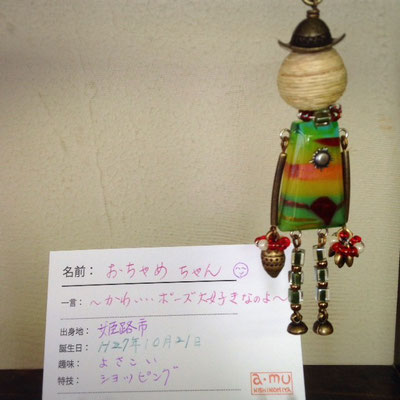 名前： おちゃめ ちゃん
一言： 〜かわ・・・ポーズ大好きなのよ〜
出身地： 姫路市
誕生日： H27年10月21日
趣味： よさこい
特技： ショッピング
a・mu